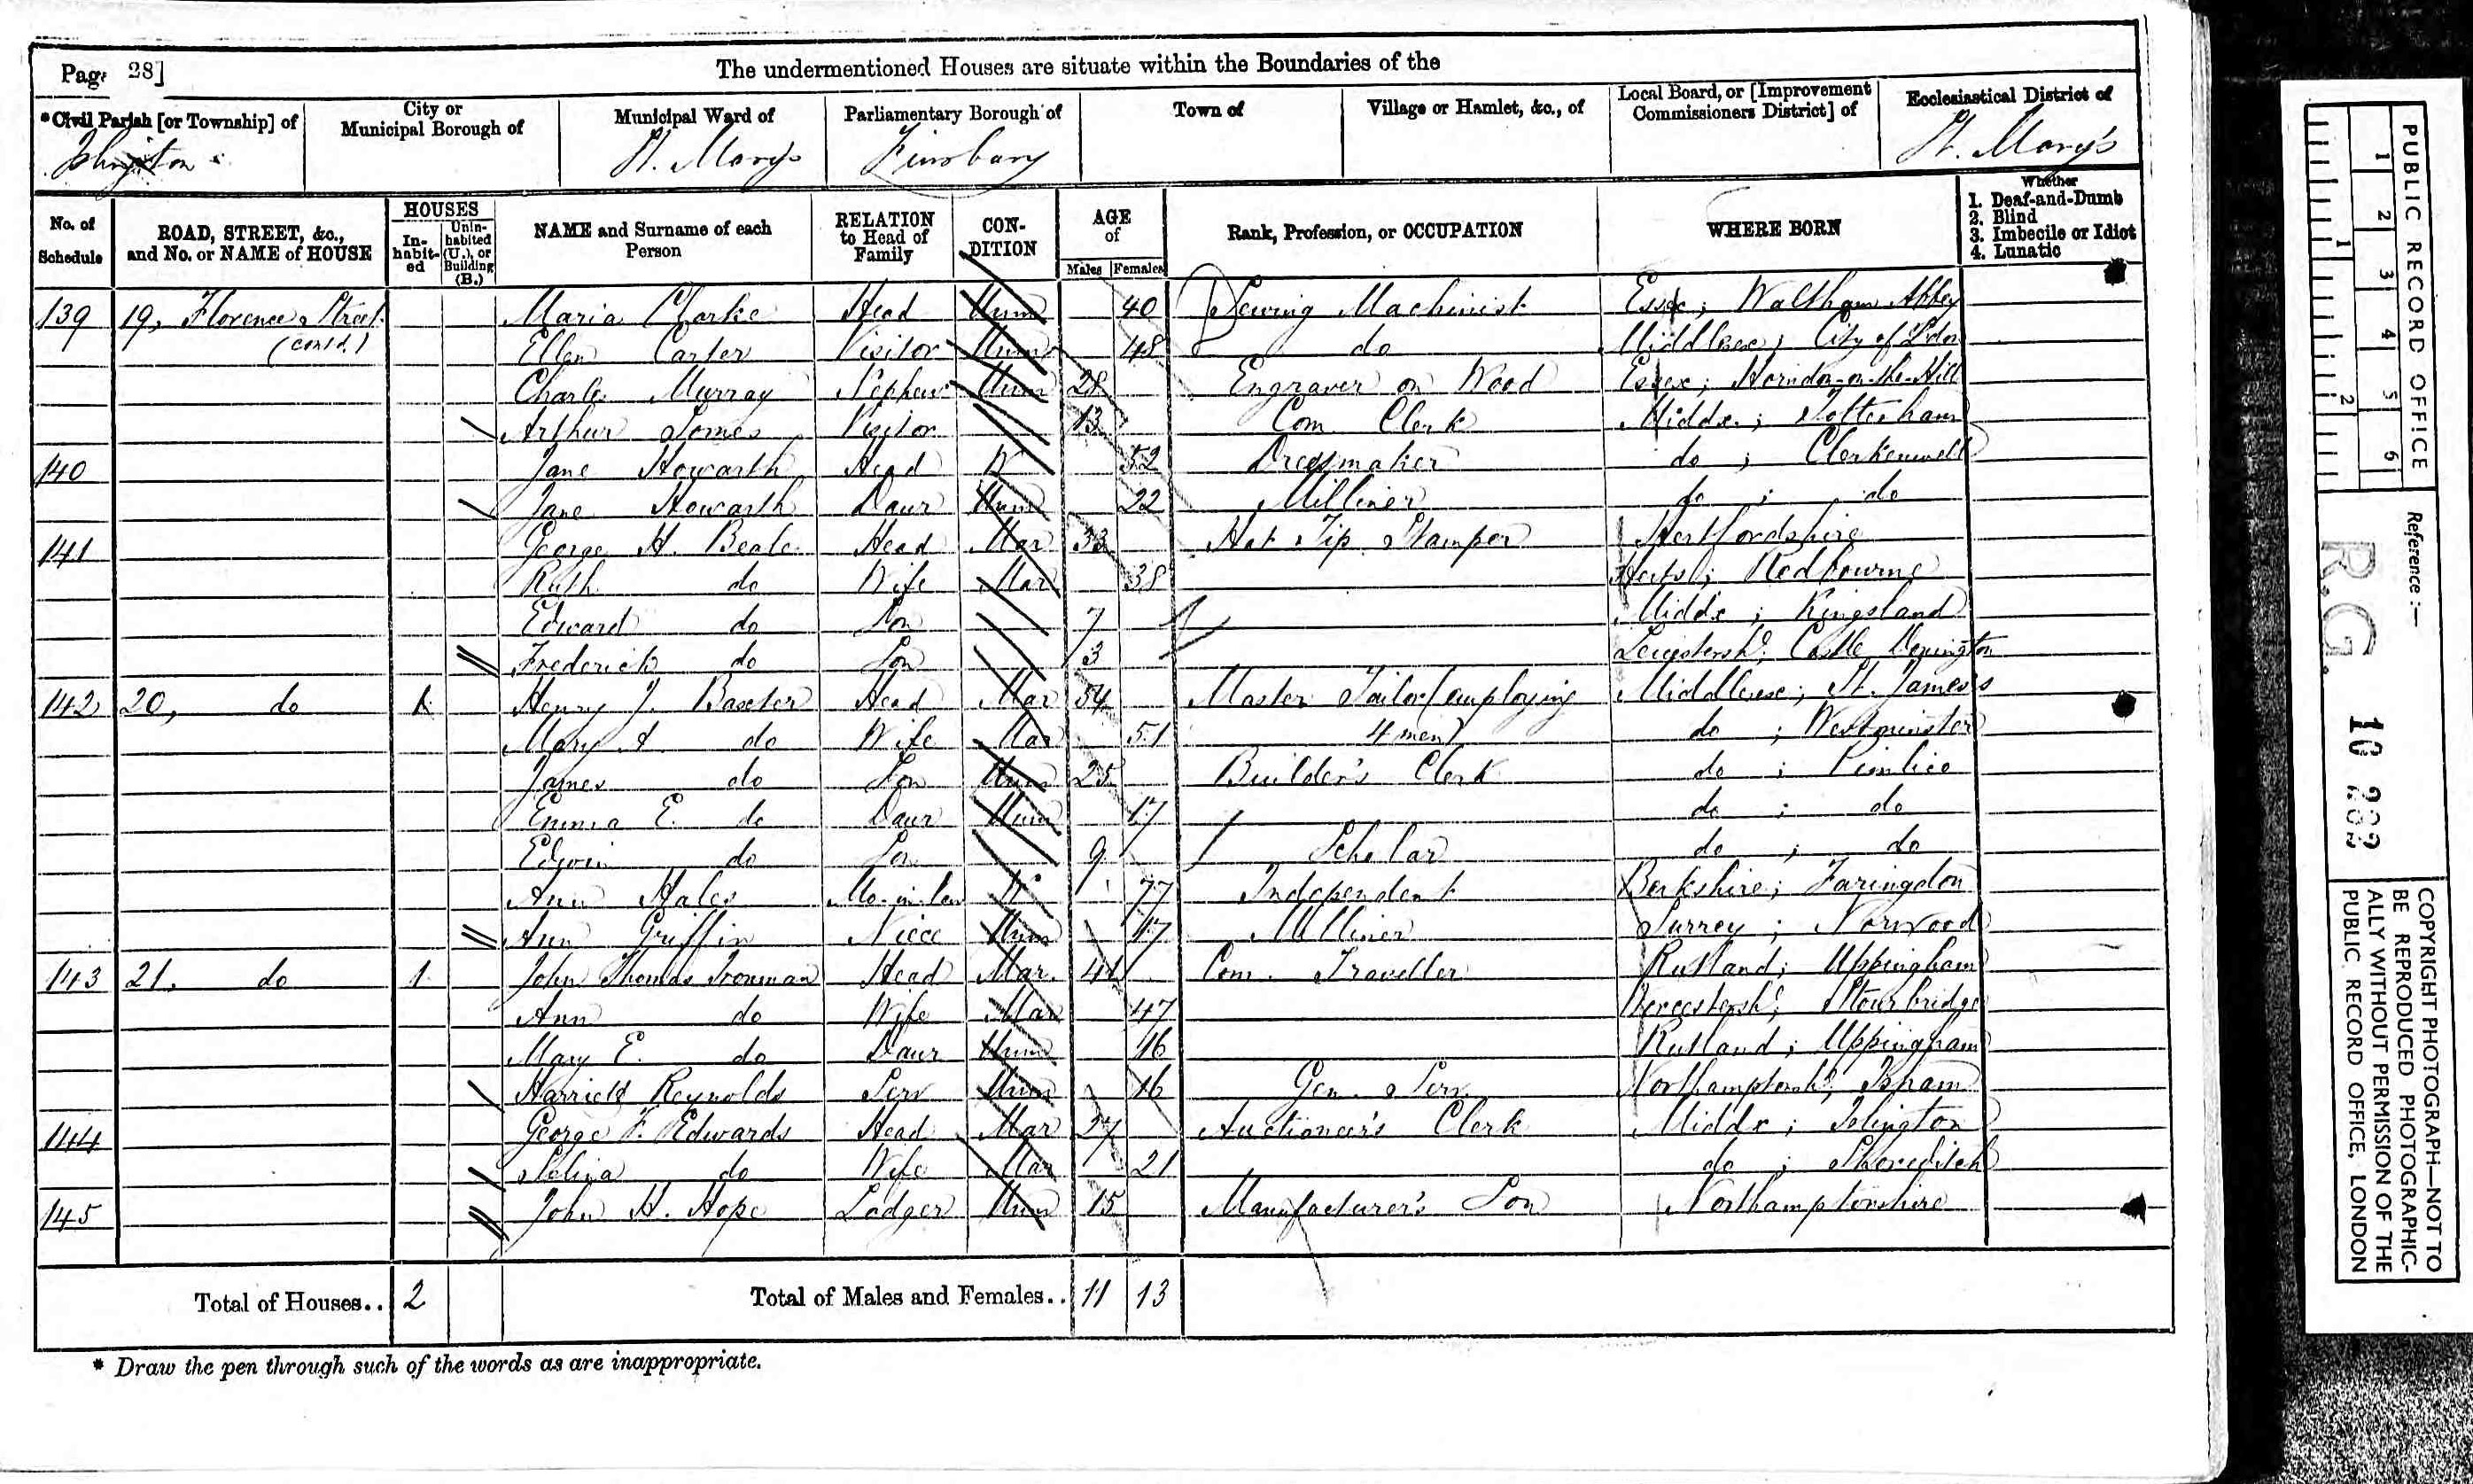 Page 28] The undermentioned Houses are situate within the Boundaries of the
*Civil Parish [or Township] of City or Municipal Borough of Municipal Ward of Parliamentary Borough of Town of Village or Hamlet, &c., of Local Board, or [Improvement Commissioners District] of Ecclesiastical District of
Islington St. Mary's Finsbury St. Mary's
No. of Schedule ROAD, STREET, &c., and No. or NAME of HOUSE HOUSES Inhabited Uninhabited (U.), or Building (B.) NAME and Surname of each Person RELATION to Head of Family CONDITION AGE of Males Females Rank, Profession, or OCCUPATION WHERE BORN Whether 1. Deaf-and-Dumb 2. Blind 3. Imbecile or Idiot 4. Lunatic
139 19, Florence Street Maria Clarke Head Unm 40 Sewing Machinist Essex; Waltham Abbey
(contd.) Ellen Carter Visitor Unm 48 do Middlesex; City of Ldon
Charles Murray Nephew Unm 28 Engraver on Wood Essex; Horndon-on-the-Hill
Arthur Somes Visitor 13 Com. Clerk Middx.; Tottenham
140 Jane Howarth Head W 52 Dressmaker do; Clerkenwell
Jane Howarth Daur Unm 22 Milliner do; do
141 George H. Beale Head Mar 33 Hat Tip Stamper Hertfordshire
Ruth do Wife Mar 38 Herts; Redbourne
Edward do Son 7 Middx; Kingsland
Frederick do Son 3 Leicestersh.; Castle Donington
142 20, do 1 Henry J. Baxter Head Mar 54 Master Tailor (employing Middlesex; St. James's
Mary A. do Wife Mar 51 4 men) do; Westminster
James do Son Unm 25 Builder's Clerk do; Pimlico
Emma E. do Daur Unm 17 do; do
Edwin do Son 9 Scholar do; do
Ann Hales Mo-in-law W 77 Independent Berkshire; Faringdon
Ann Griffin Niece Unm 47 Milliner Surrey; Norwood
143 21. do 1 John Thomas Ironman Head Mar. 41 Com. Traveller Rutland; Uppingham
Ann do Wife Mar 47 Worcestersh.; Stourbridge
Mary E. do Daur Unm 16 Rutland; Uppingham
Harriett Reynolds Serv Unm 16 Gen. Serv. Northamptonsh.; Isham
144 George F. Edwards Head Mar 27 Auctioneer's Clerk Middx; Islington
Selina do Wife Mar 21 do; Shoreditch
145 John H. Hope Lodger Unm 15 Manufacturer's Son Northamptonshire
Total of Houses.. 2 Total of Males and Females.. 11 13
* Draw the pen through such of the words as are inappropriate.
PUBLIC RECORD OFFICE
1 2 3 4 5 6
1 2
Reference:—
R.G. 10
COPYRIGHT PHOTOGRAPH—NOT TO
BE REPRODUCED PHOTOGRAPHIC-
ALLY WITHOUT PERMISSION OF THE
PUBLIC RECORD OFFICE, LONDON